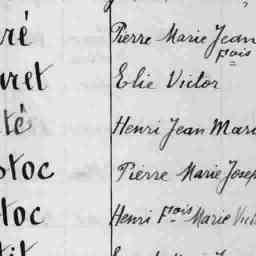 ré Pierre Marie Jean
fçois
uret Elie Victor
té Henri Jean Mari
stoc Pierre Marie Josep
toc Henri fçois Marie Vict
tit